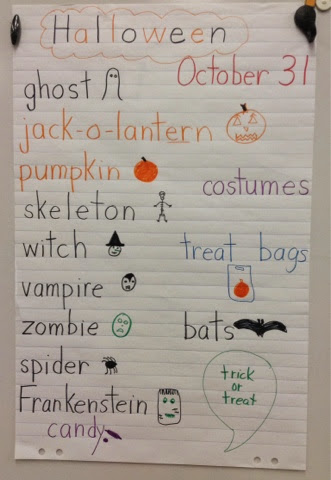 Halloween
October 31
ghost
jack-o-lantern
pumpkin
costumes
skeleton
witch
treat bags
vampire
zombie
bats
spider
trick
or
treat
Frankenstein
candy